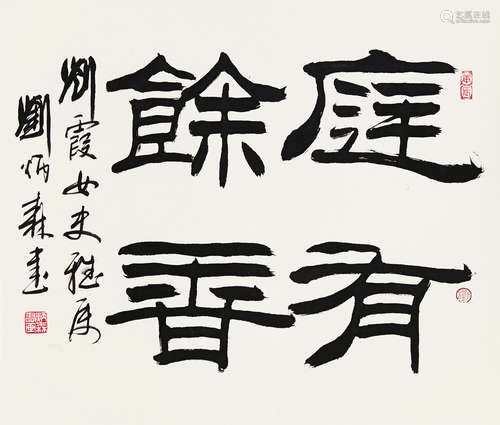 庭有
餘香
劉霞女史雅属
劉炳森書